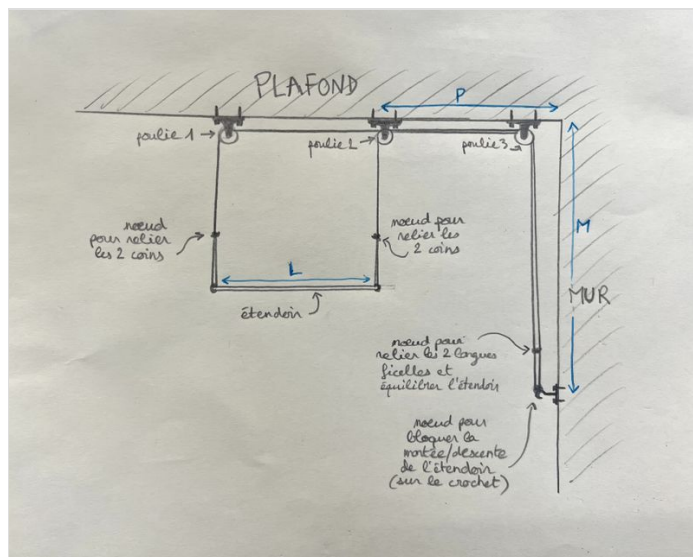 PLAFOND
P
poulie 1
poulie 2
poulie 3
noeud
pour relier
les 2 coins
noeud pour
relier les
2 coins
L
étendoir
M
MUR
noeud pour
relier les 2 longues
ficelles et
équilibrer l'étendoir
noeud pour
bloquer la
montée/descente
de l'étendoir
(sur le crochet)